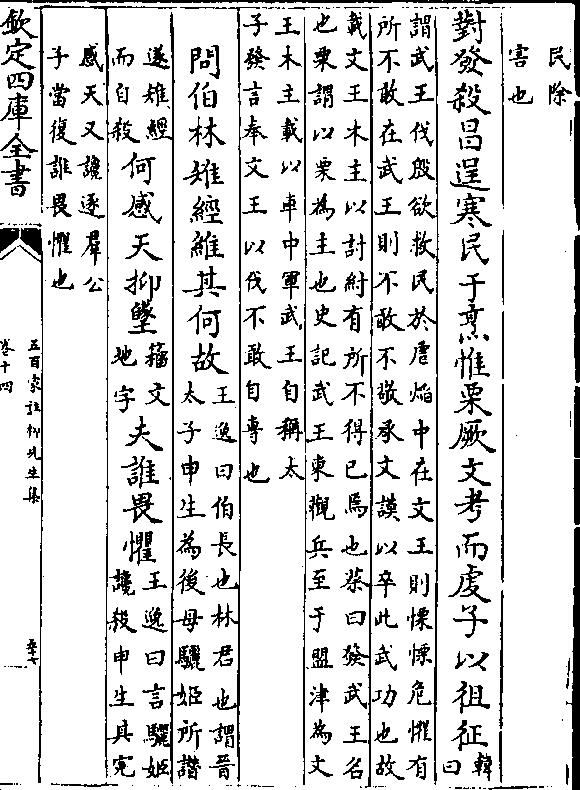 民除
害也
對發殺昌逞寒民于烹惟栗厥文考而虔子以徂征韓曰
謂武王伐殷欲救民於虐焰中在文王則慄慄危懼有
所不敢在武王則不敢不敬承文謨以卒此武功也故
載文王木主以討紂有所不得已焉也蔡曰發武王名
也栗謂以栗為主也史記武王東觀兵至于盟津為文
王木主載以車中軍武王自稱太
子發言奉文王以伐不敢自専也
問伯林雉經維其何故王逸曰伯長也林君也謂晉太子申生為後母驪姬所譖
遂雉經而自殺何感天抑墬籀文地字夫誰畏懼王逸曰言驪姬讒殺申生其寃
感天又讒逐羣公
子當復誰畏懼也
欽定四庫全書
五百家註柳先生集
卷十四